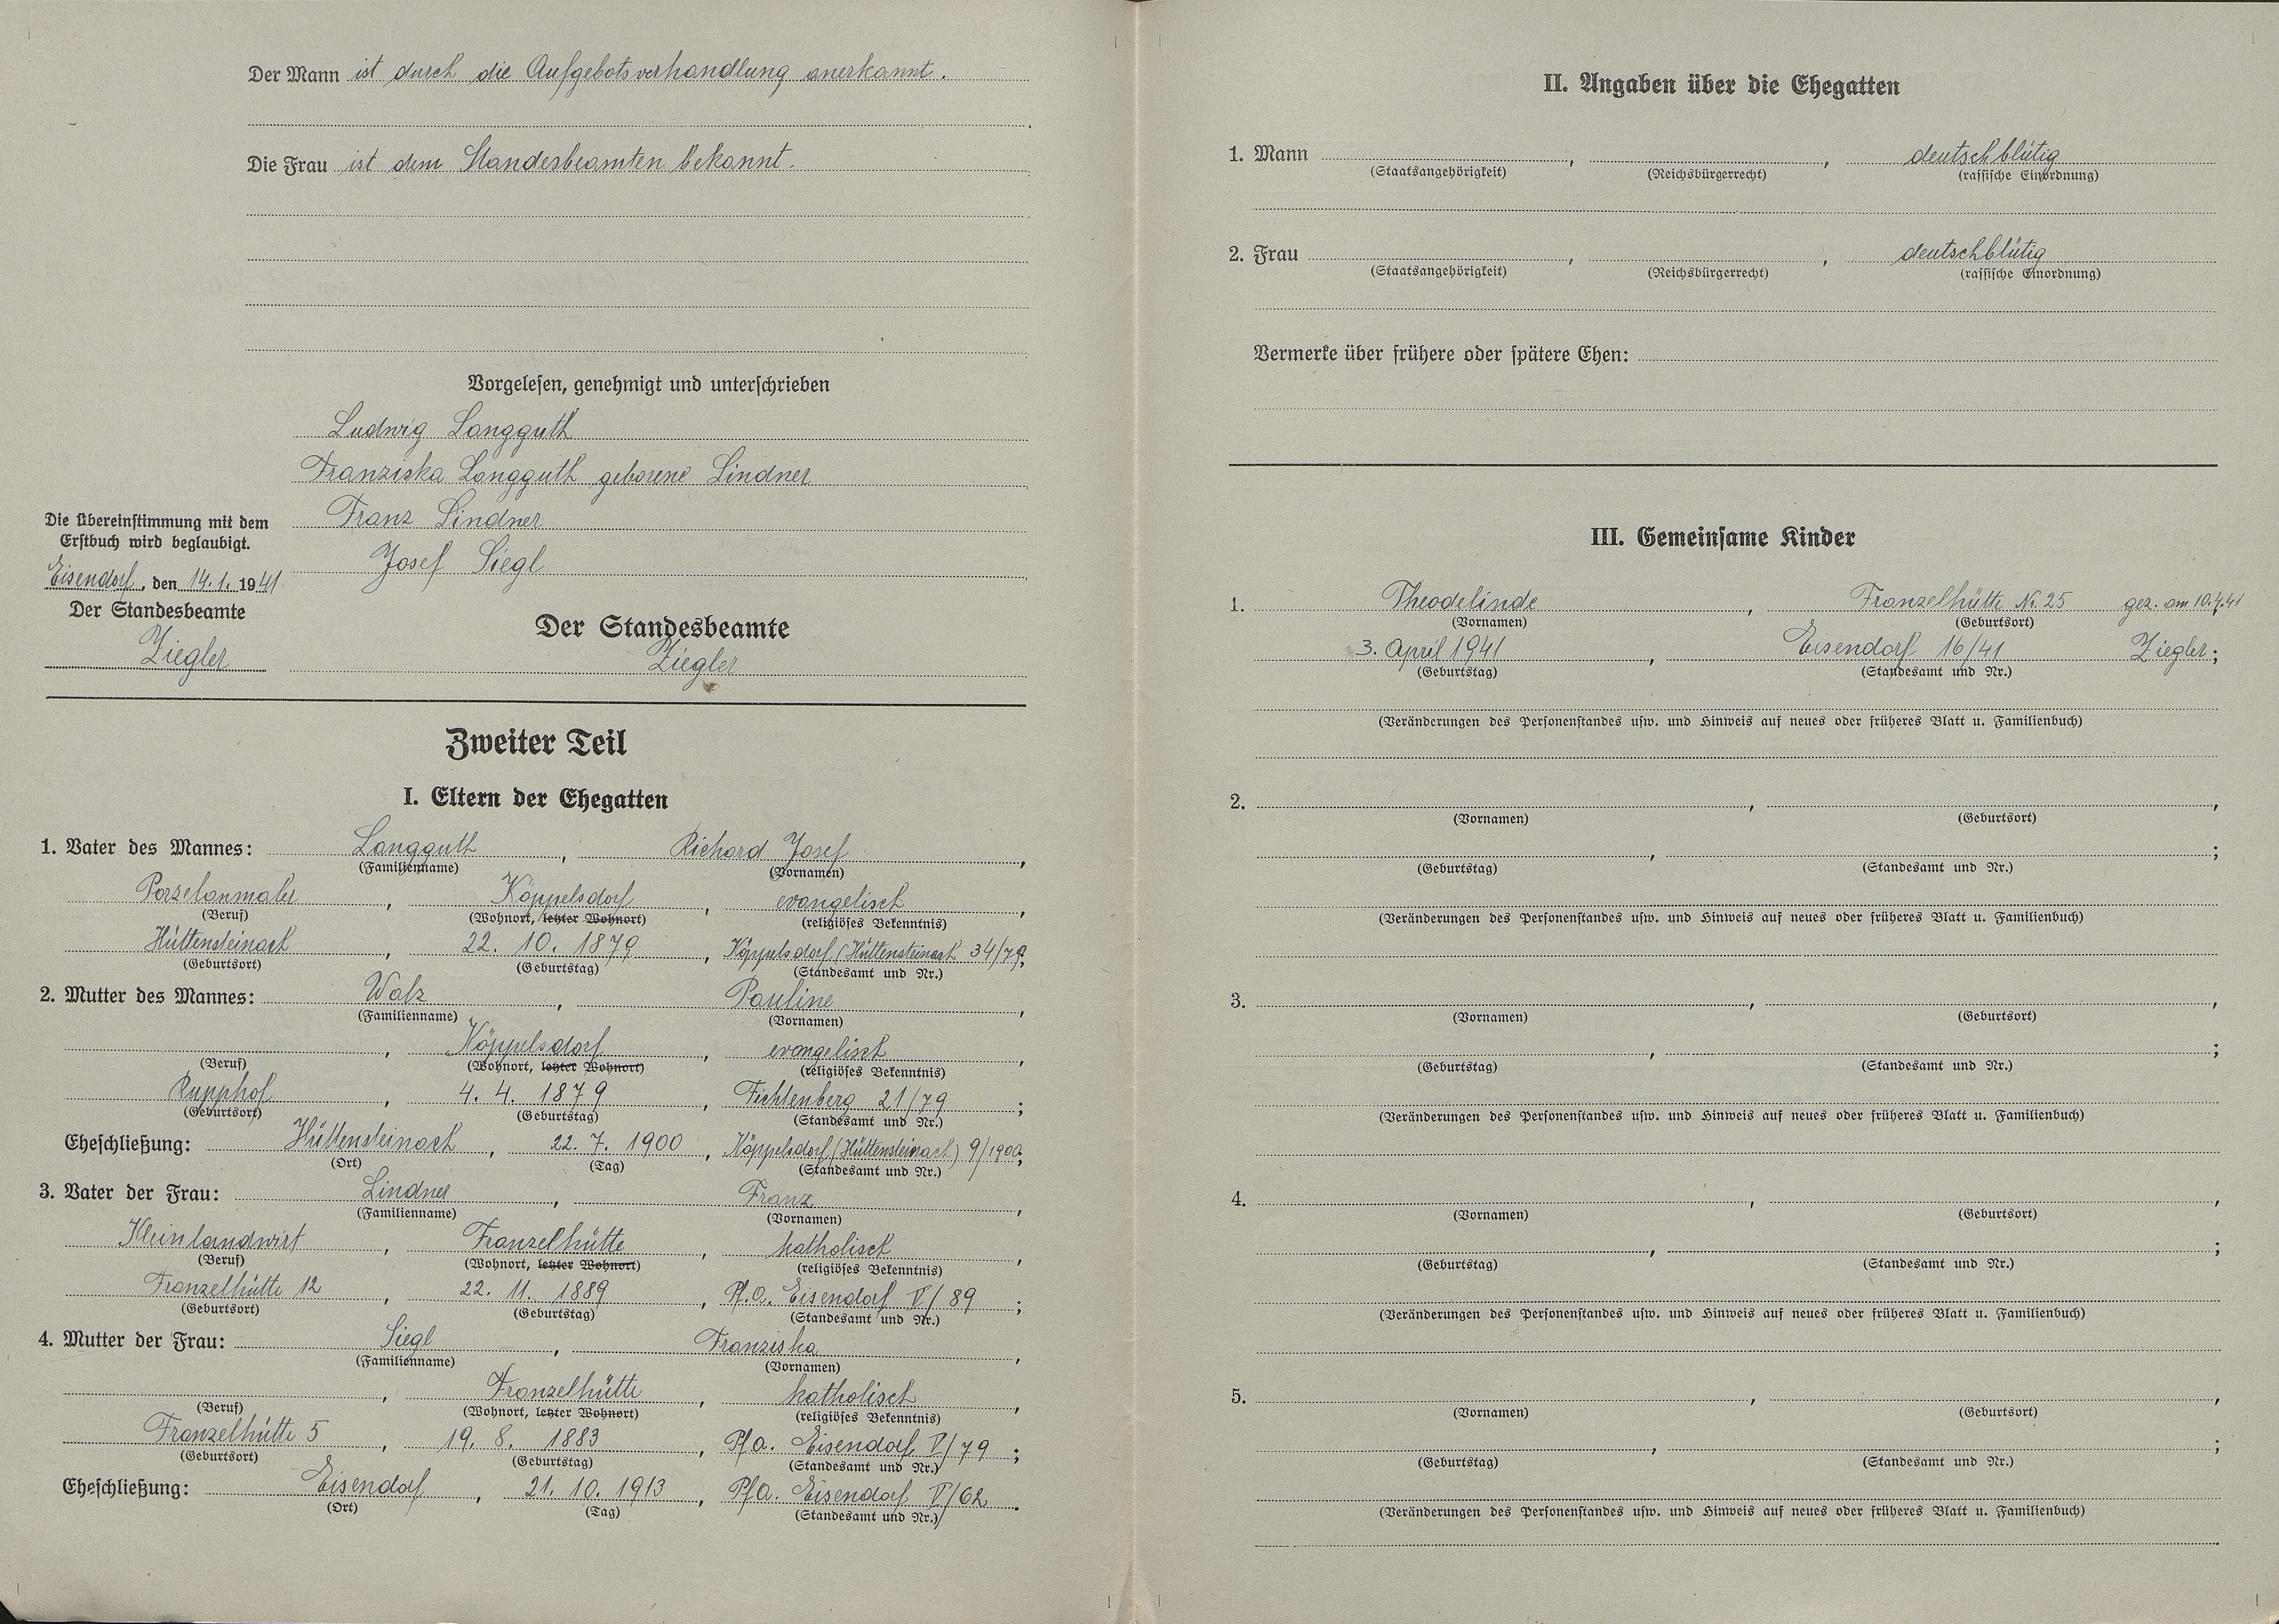 Der Mann ist durch die Aufgebotsverhandlung anerkannt.
Die Frau ist dem Standesbeamten bekannt.
Vorgelesen, genehmigt und unterschrieben
Ludwig Langguth
Franziska Langguth geborene Lindner
Franz Lindner
Josef Siegl
Die Übereinstimmung mit dem
Erstbuch wird beglaubigt.
Eisendorf, den 14.1.1941
Der Standesbeamte
Ziegler
Der Standesbeamte
Ziegler
Zweiter Teil
I. Eltern der Ehegatten
1. Vater des Mannes: Langguth, Richard Josef,
(Familienname) (Vornamen)
Porzelanmaler, Köppelsdorf, evangelisch,
(Beruf) (Wohnort, letzter Wohnort) (religiöses Bekenntnis)
Hüttensteinach, 22. 10. 1879, Köppelsdorf (Hüttensteinach 34/79;
(Geburtsort) (Geburtstag) (Standesamt und Nr.)
2. Mutter des Mannes: Walz, Pauline,
(Familienname) (Vornamen)
, Köppelsdorf, evangelisch,
(Beruf) (Wohnort, letzter Wohnort) (religiöses Bekenntnis)
Rupphof, 4. 4. 1879, Fichtenberg 21/79;
(Geburtsort) (Geburtstag) (Standesamt und Nr.)
Eheschließung: Hüttensteinach, 22. 7. 1900, Köppelsdorf (Hüttensteinach) 9/1900;
(Ort) (Tag) (Standesamt und Nr.)
3. Vater der Frau: Lindner, Franz,
(Familienname) (Vornamen)
Kleinlandwirt, Franzelhütte, katholisch,
(Beruf) (Wohnort, letzter Wohnort) (religiöses Bekenntnis)
Franzelhütte 12, 22. 11. 1889, Pf.a. Eisendorf V/89;
(Geburtsort) (Geburtstag) (Standesamt und Nr.)
4. Mutter der Frau: Siegl, Franziska,
(Familienname) (Vornamen)
, Franzelhütte, katholisch,
(Beruf) (Wohnort, letzter Wohnort) (religiöses Bekenntnis)
Franzelhütte 5, 19. 8. 1883, Pfa. Eisendorf V/79;
(Geburtsort) (Geburtstag) (Standesamt und Nr.)
Eheschließung: Eisendorf, 21. 10. 1913, Pfa. Eisendorf V/62.
(Ort) (Tag) (Standesamt und Nr.)
II. Angaben über die Ehegatten
1. Mann , , deutschblütig
(Staatsangehörigkeit) (Reichsbürgerrecht) (rassische Einordnung)
2. Frau , , deutschblütig
(Staatsangehörigkeit) (Reichsbürgerrecht) (rassische Einordnung)
Vermerke über frühere oder spätere Ehen:
III. Gemeinsame Kinder
1. Theodelinde, Franzelhütte Nr. 25 gez. am 10.4.41
(Vornamen) (Geburtsort)
3. April 1941, Eisendorf 16/41 Ziegler;
(Geburtstag) (Standesamt und Nr.)
(Veränderungen des Personenstandes usw. und Hinweis auf neues oder früheres Blatt u. Familienbuch)
2. , ,
(Vornamen) (Geburtsort)
, ;
(Geburtstag) (Standesamt und Nr.)
(Veränderungen des Personenstandes usw. und Hinweis auf neues oder früheres Blatt u. Familienbuch)
3. , ,
(Vornamen) (Geburtsort)
, ;
(Geburtstag) (Standesamt und Nr.)
(Veränderungen des Personenstandes usw. und Hinweis auf neues oder früheres Blatt u. Familienbuch)
4. , ,
(Vornamen) (Geburtsort)
, ;
(Geburtstag) (Standesamt und Nr.)
(Veränderungen des Personenstandes usw. und Hinweis auf neues oder früheres Blatt u. Familienbuch)
5. , ,
(Vornamen) (Geburtsort)
, ;
(Geburtstag) (Standesamt und Nr.)
(Veränderungen des Personenstandes usw. und Hinweis auf neues oder früheres Blatt u. Familienbuch)